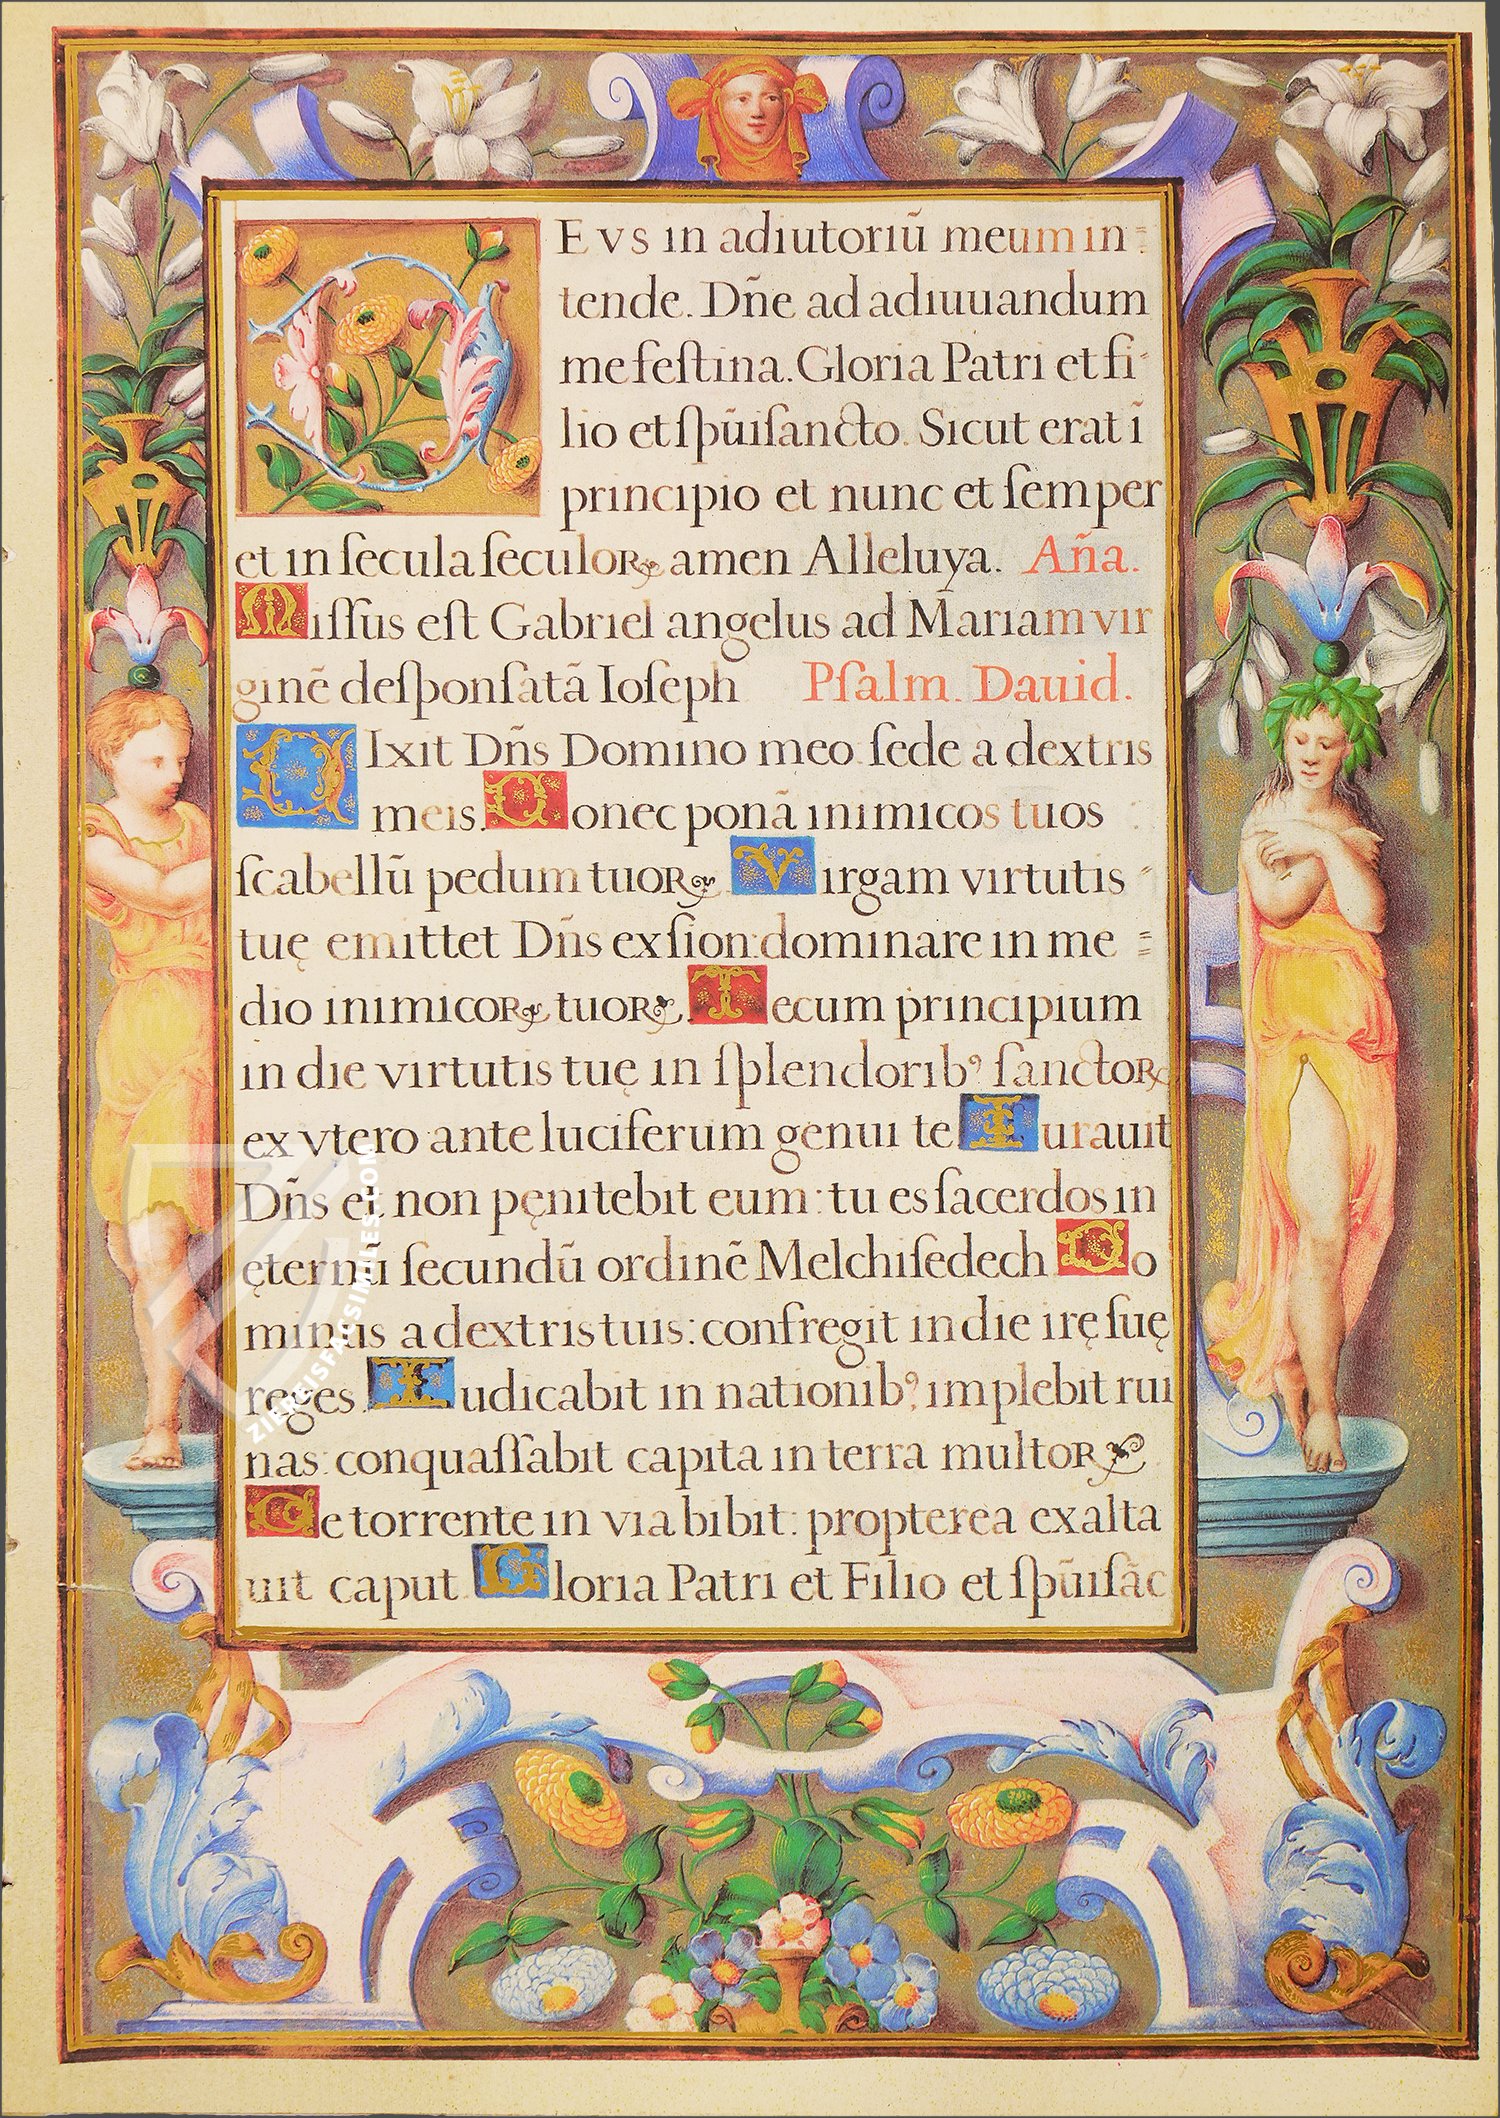 DEVS in adiutoriũ meum in=
tende. Dñe ad adiuuandum
me feſtina. Gloria Patri et fi-
lio et ſpũiſancto. Sicut erat ĩ
principio et nunc et ſemper
et in ſecula ſeculoꝝ amen Alleluya. Aña.
Miſſus eſt Gabriel angelus ad Mariam vir
ginẽ deſponſatã Ioſeph Pſalm. Dauid.
DIxit Dñs Domino meo ſede à dextris
meis. Donec ponã inimicos tuos
ſcabellũ pedum tuoꝝ Virgam virtutis
tuę emittet Dñs ex ſion: dominare in me=
dio inimicoꝝ tuoꝝ. Tecum principium
in die virtutis tuę in ſplendorib⁹ ſanctoꝝ
ex vtero ante luciferum genui te Iurauit
Dñs et non pęnitebit eum: tu es ſacerdos in
ęternũ ſecundũ ordinẽ Melchiſedech Do
minus a dextris tuis: confregit in die irę ſuę
reges. Iudicabit in nationib⁹, implebit rui
nas: conquaſſabit capita in terra multoꝝ
De torrente in via bibit: propterea exalta
uit caput Gloria Patri et Filio et ſpũiſãc
ZIEREISFACSIMILES.COM